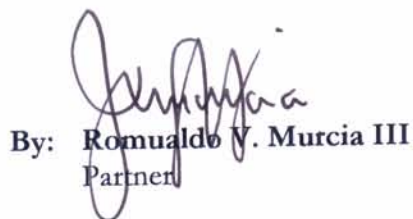 By: Romualdo V. Murcia III
Partner